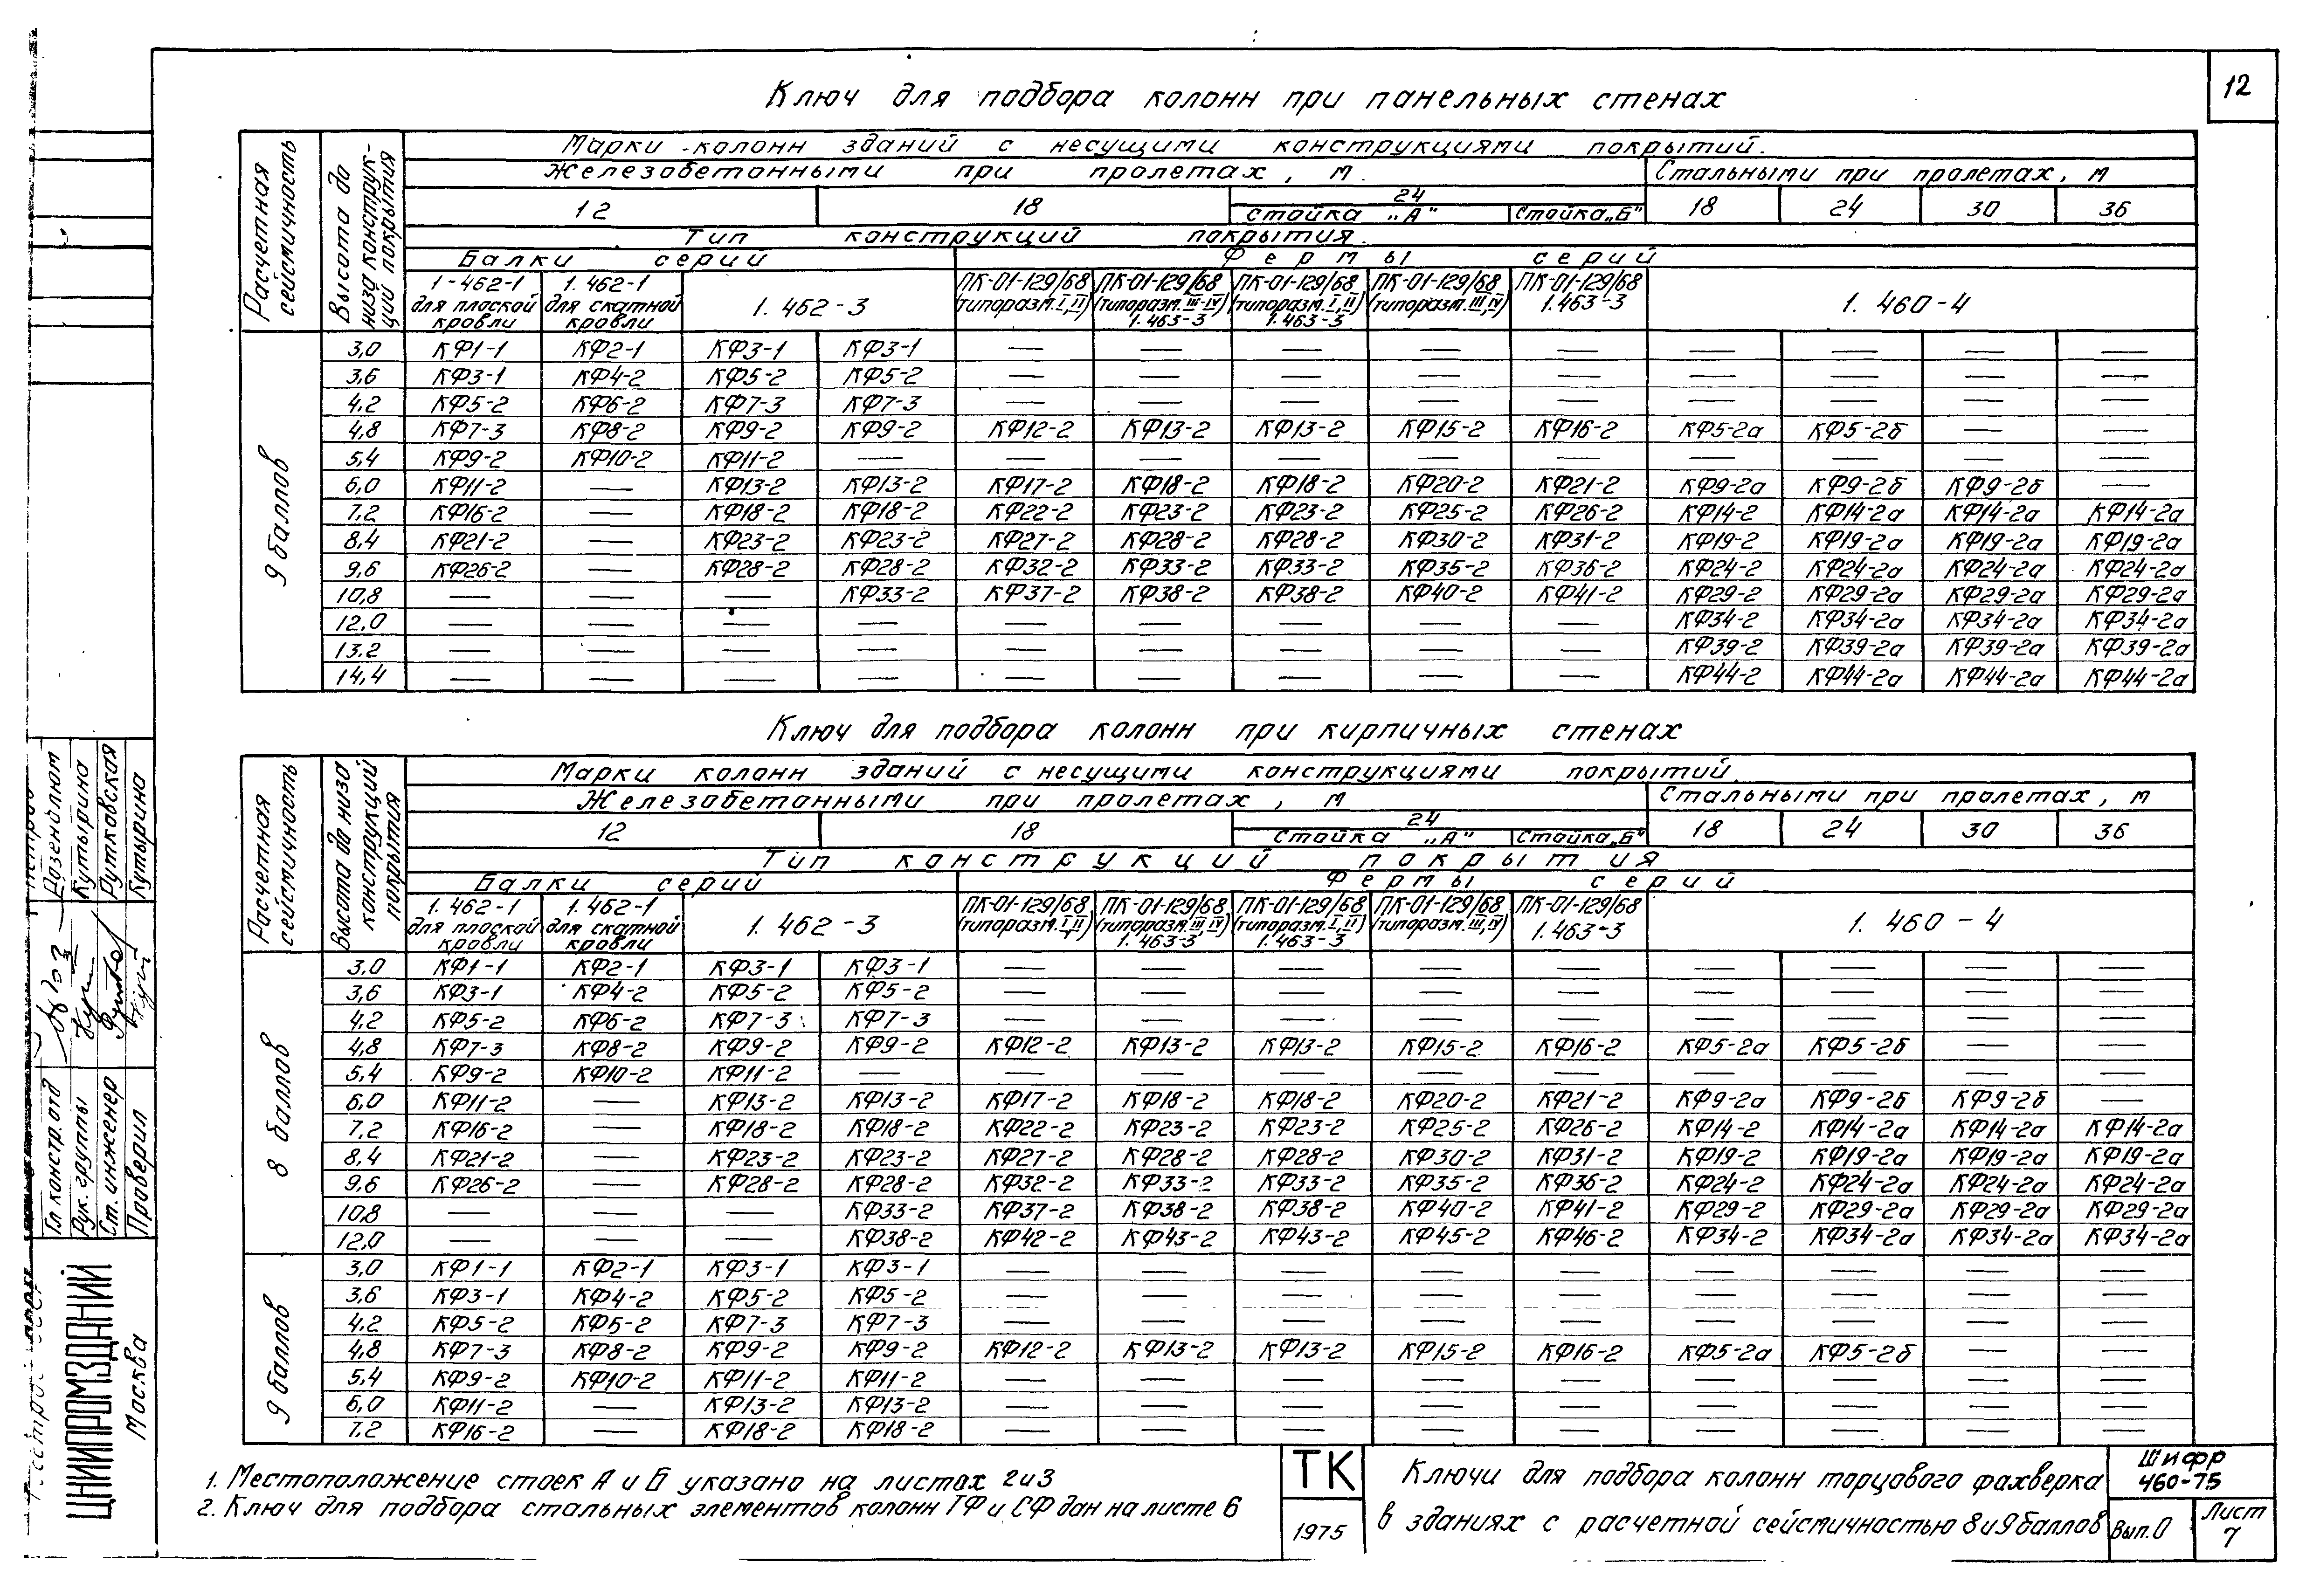 12
Ключ для подбора колонн при панельных стенах
Расчетная сейсмичность
Высота до низа конструк-ций покрытия
Марки колонн зданий с несущими конструкциями покрытий.
Железобетонными при пролетах, м.
Стальными при пролетах, м
12 18 24 18 24 30 36
стойка „А" стойка „Б"
Тип конструкций покрытия.
Балки серий Фермы серий
1-462-1 для плоской кровли
1.462-1 для скатной кровли
1.462-3
ПК-01-129/68 (типоразм. I, II)
ПК-01-129/68 (типоразм. III-IV) 1.463-3
ПК-01-129/68 (типоразм. I, II) 1.463-3
ПК-01-129/68 (типоразм. III, IV)
ПК-01-129/68 1.463-3
1.460-4
9 баллов
3,0 КФ1-1 КФ2-1 КФ3-1 КФ3-1 — — — — — — — — —
3,6 КФ3-1 КФ4-2 КФ5-2 КФ5-2 — — — — — — — — —
4,2 КФ5-2 КФ6-2 КФ7-3 КФ7-3 — — — — — — — — —
4,8 КФ7-3 КФ8-2 КФ9-2 КФ9-2 КФ12-2 КФ13-2 КФ13-2 КФ15-2 КФ16-2 КФ5-2а КФ5-2б — —
5,4 КФ9-2 КФ10-2 КФ11-2 — — — — — — — — — —
6,0 КФ11-2 — КФ13-2 КФ13-2 КФ17-2 КФ18-2 КФ18-2 КФ20-2 КФ21-2 КФ9-2а КФ9-2б КФ9-2б —
7,2 КФ16-2 — КФ18-2 КФ18-2 КФ22-2 КФ23-2 КФ23-2 КФ25-2 КФ26-2 КФ14-2 КФ14-2а КФ14-2а КФ14-2а
8,4 КФ21-2 — КФ23-2 КФ23-2 КФ27-2 КФ28-2 КФ28-2 КФ30-2 КФ31-2 КФ19-2 КФ19-2а КФ19-2а КФ19-2а
9,6 КФ26-2 — КФ28-2 КФ28-2 КФ32-2 КФ33-2 КФ33-2 КФ35-2 КФ36-2 КФ24-2 КФ24-2а КФ24-2а КФ24-2а
10,8 — — — КФ33-2 КФ37-2 КФ38-2 КФ38-2 КФ40-2 КФ41-2 КФ29-2 КФ29-2а КФ29-2а КФ29-2а
12.0 — — — — — — — — — КФ34-2 КФ34-2а КФ34-2а КФ34-2а
13.2 — — — — — — — — — КФ39-2 КФ39-2а КФ39-2а КФ39-2а
14,4 — — — — — — — — — КФ44-2 КФ44-2а КФ44-2а КФ44-2а
Ключ для подбора колонн при кирпичных стенах
Расчетная сейсмичность
Высота до низа конструкций покрытия
Марки колонн зданий с несущими конструкциями покрытий.
Железобетонными при пролетах, м
Стальными при пролетах, м
12 18 24 18 24 30 36
стойка „А" стойка „Б"
Тип конструкций покрытия
Балки серий Фермы серий
1.462-1 для плоской кровли
1.462-1 для скатной кровли
1.462-3
ПК-01-129/68 (типоразм. I, II)
ПК-01-129/68 (типоразм. III, IV) 1.463-3
ПК-01-129/68 (типоразм. I, II) 1.463-3
ПК-01-129/68 (типоразм. III, IV)
ПК-01-129/68 1.463-3
1.460-4
8 баллов
3,0 КФ1-1 КФ2-1 КФ3-1 КФ3-1 — — — — — — — — —
3,6 КФ3-1 КФ4-2 КФ5-2 КФ5-2 — — — — — — — — —
4,2 КФ5-2 КФ6-2 КФ7-3 КФ7-3 — — — — — — — — —
4,8 КФ7-3 КФ8-2 КФ9-2 КФ9-2 КФ12-2 КФ13-2 КФ13-2 КФ15-2 КФ16-2 КФ5-2а КФ5-2б — —
5,4 КФ9-2 КФ10-2 КФ11-2 — — — — — — — — — —
6,0 КФ11-2 — КФ13-2 КФ13-2 КФ17-2 КФ18-2 КФ18-2 КФ20-2 КФ21-2 КФ9-2а КФ9-2б КФ9-2б —
7,2 КФ16-2 — КФ18-2 КФ18-2 КФ22-2 КФ23-2 КФ23-2 КФ25-2 КФ26-2 КФ14-2 КФ14-2а КФ14-2а КФ14-2а
8,4 КФ21-2 — КФ23-2 КФ23-2 КФ27-2 КФ28-2 КФ28-2 КФ30-2 КФ31-2 КФ19-2 КФ19-2а КФ19-2а КФ19-2а
9,6 КФ26-2 — КФ28-2 КФ28-2 КФ32-2 КФ33-2 КФ33-2 КФ35-2 КФ36-2 КФ24-2 КФ24-2а КФ24-2а КФ24-2а
10,8 — — — КФ33-2 КФ37-2 КФ38-2 КФ38-2 КФ40-2 КФ41-2 КФ29-2 КФ29-2а КФ29-2а КФ29-2а
12,0 — — — КФ38-2 КФ42-2 КФ43-2 КФ43-2 КФ45-2 КФ46-2 КФ34-2 КФ34-2а КФ34-2а КФ34-2а
9 баллов
3,0 КФ1-1 КФ2-1 КФ3-1 КФ3-1 — — — — — — — — —
3,6 КФ3-1 КФ4-2 КФ5-2 КФ5-2 — — — — — — — — —
4,2 КФ5-2 КФ6-2 КФ7-3 КФ7-3 — — — — — — — — —
4,8 КФ7-3 КФ8-2 КФ9-2 КФ9-2 КФ12-2 КФ13-2 КФ13-2 КФ15-2 КФ16-2 КФ5-2а КФ5-2б — —
5,4 КФ9-2 КФ10-2 КФ11-2 КФ11-2 — — — — — — — — —
6,0 КФ11-2 — КФ13-2 КФ13-2 — — — — — — — — —
7,2 КФ16-2 — КФ18-2 КФ18-2 — — — — — — — — —
1. Местоположение стоек А и Б указано на листах 2и3
2. Ключ для подбора стальных элементов колонн ТФ и СФ дан на листе 6
ТК
1975
Ключи для подбора колонн торцового фахверка
в зданиях с расчетной сейсмичностью 8 и 9 баллов
Шифр
460-75
Вып.0
Лист
7
Гл констр. отд
Рук. группы Кутырина
Ст. инженер Рутковская
Проверил Кутырина
ЦНИИПРОМЗДАНИЙ
Москва